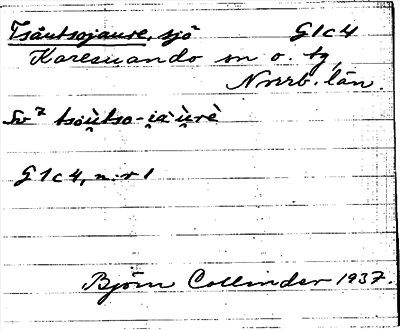 Tsåutsojaure, sjö G1c4
Karesuando sn o. tg,
Norrb. län.
Sv⁷ tsåu̯tso-i̯au̯rè
G1c4, n:r 1
Björn Collinder 1937.